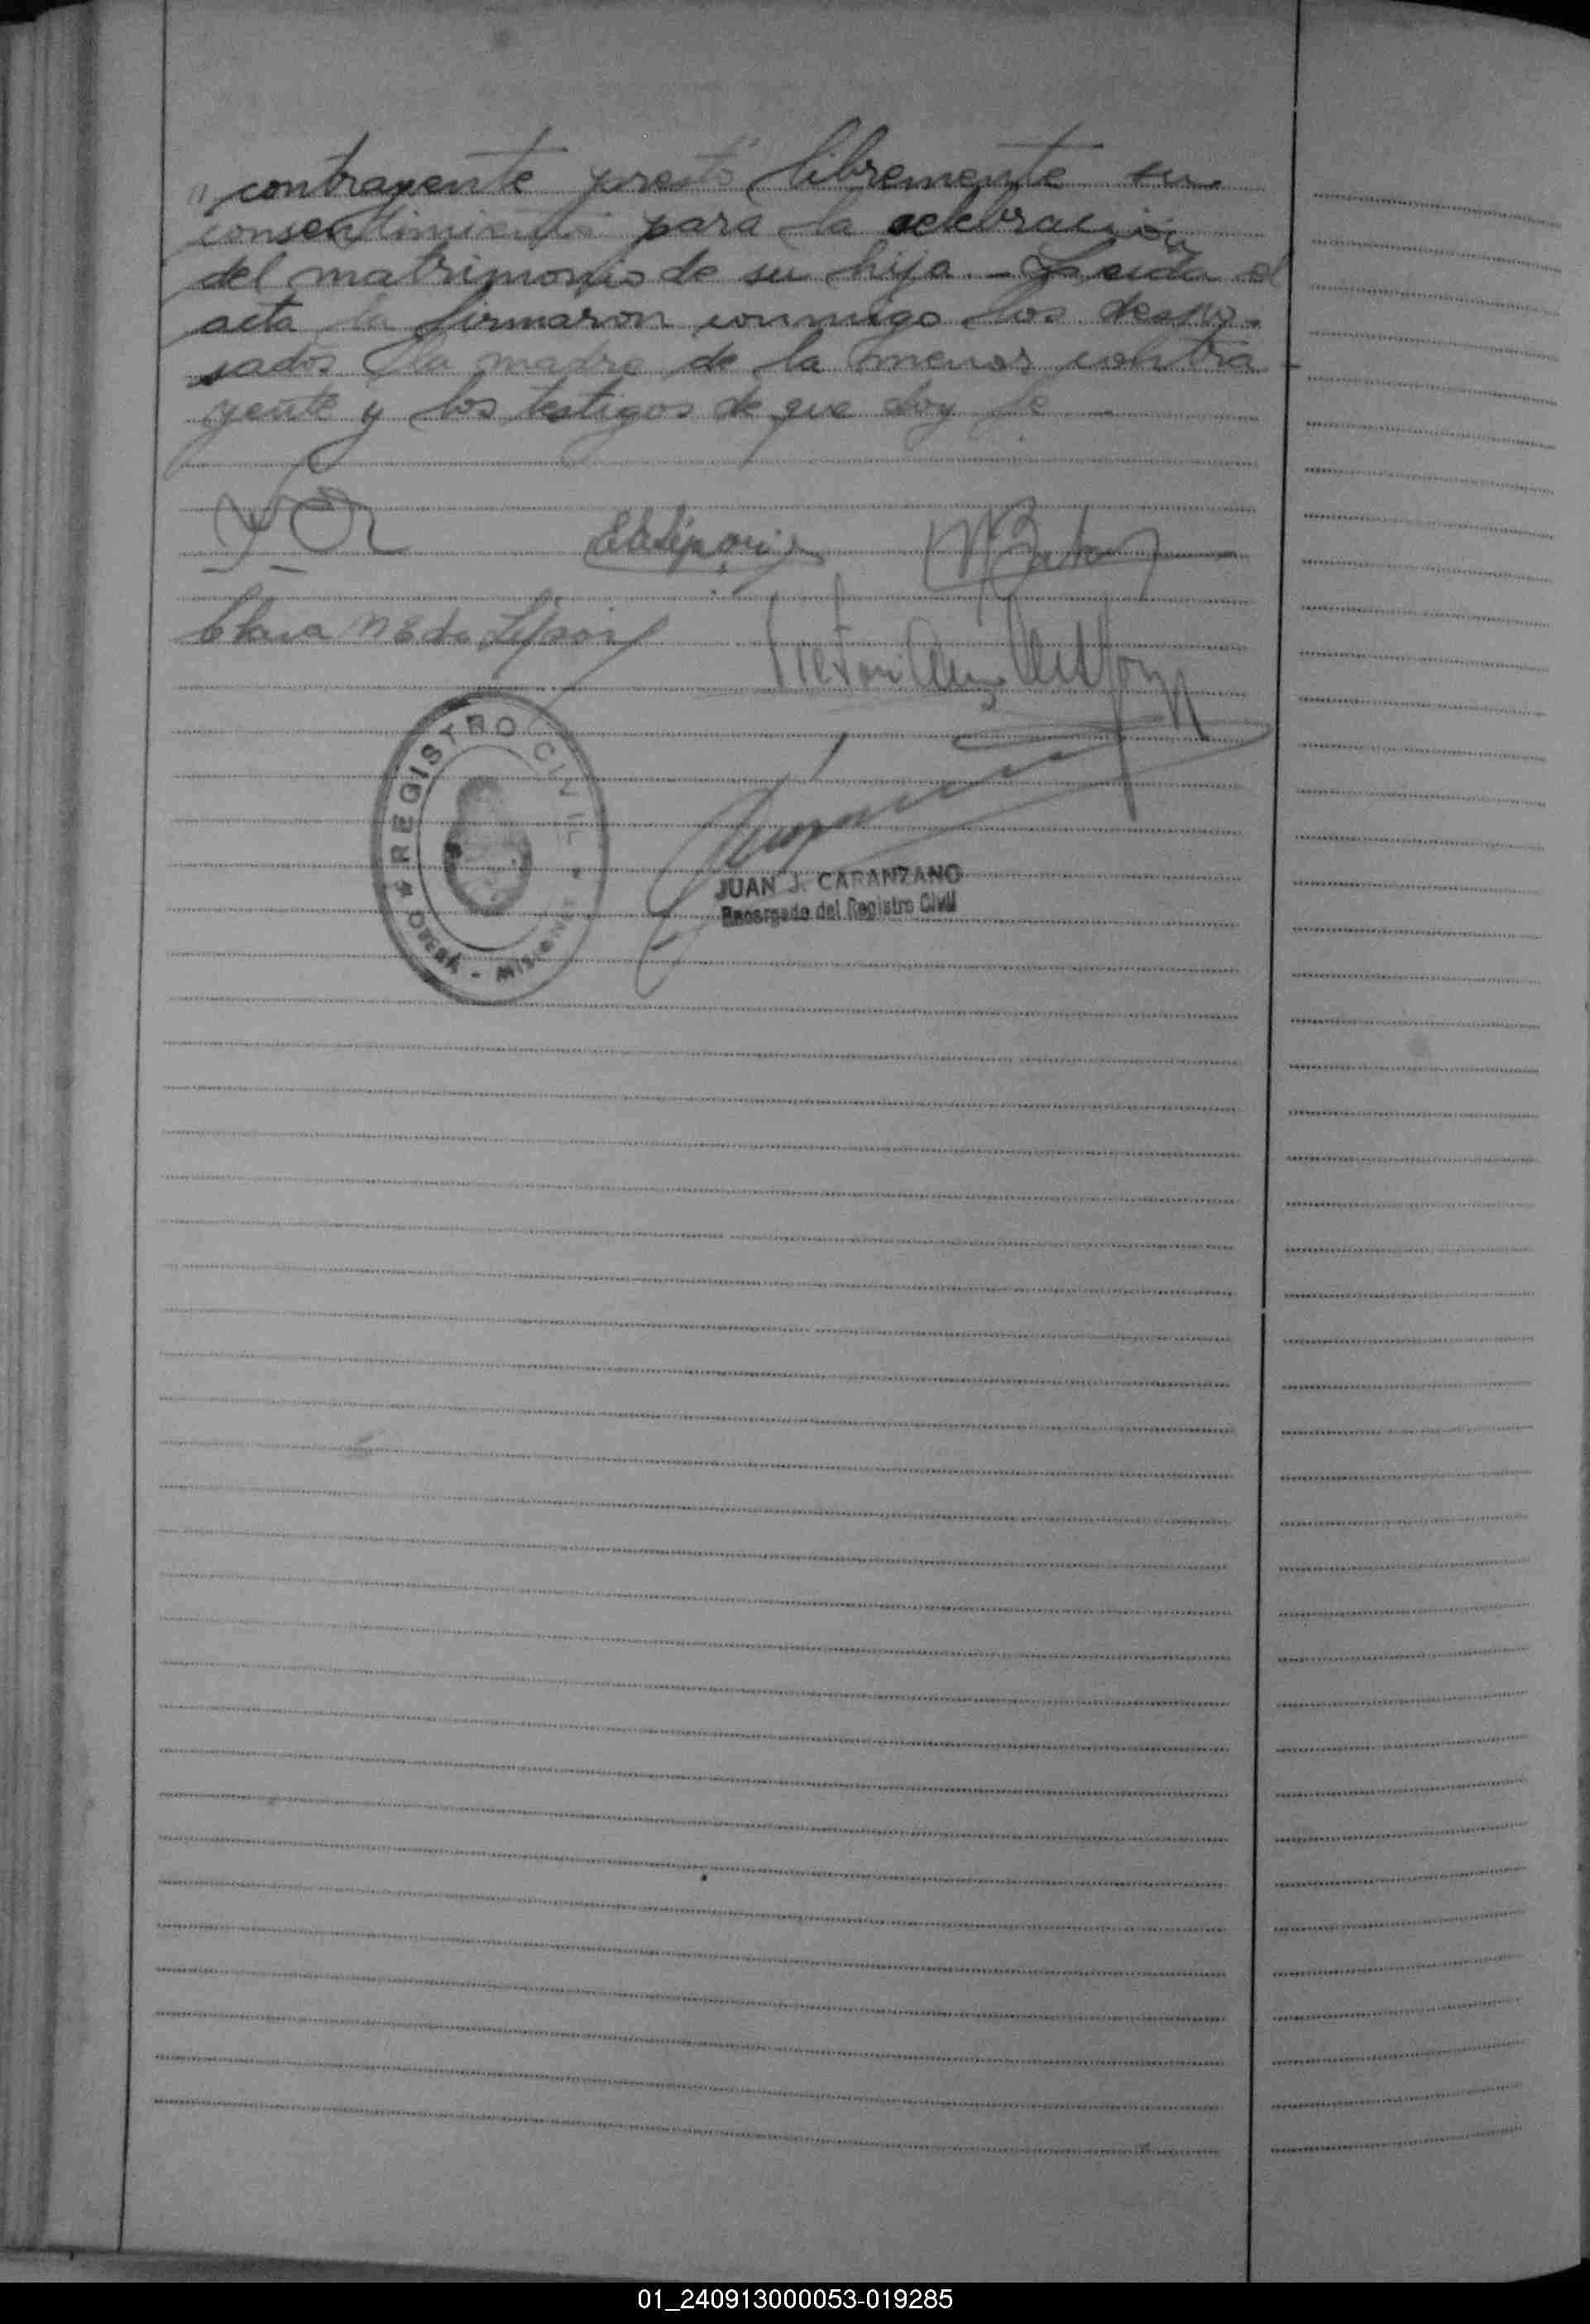 " contrayente prestó libremente su
consentimiento para la celebración
del matrimonio de su hija. - Leida el
acta la firmaron conmigo los despo-
sados la madre de la menor contra-
yente y los testigos de que doy fe -
Clara de
REGISTRO CIVIL
OBERÁ - MISIONES
JUAN J. CARANZANO
Encargado del Registro Civil
01_240913000053-019285